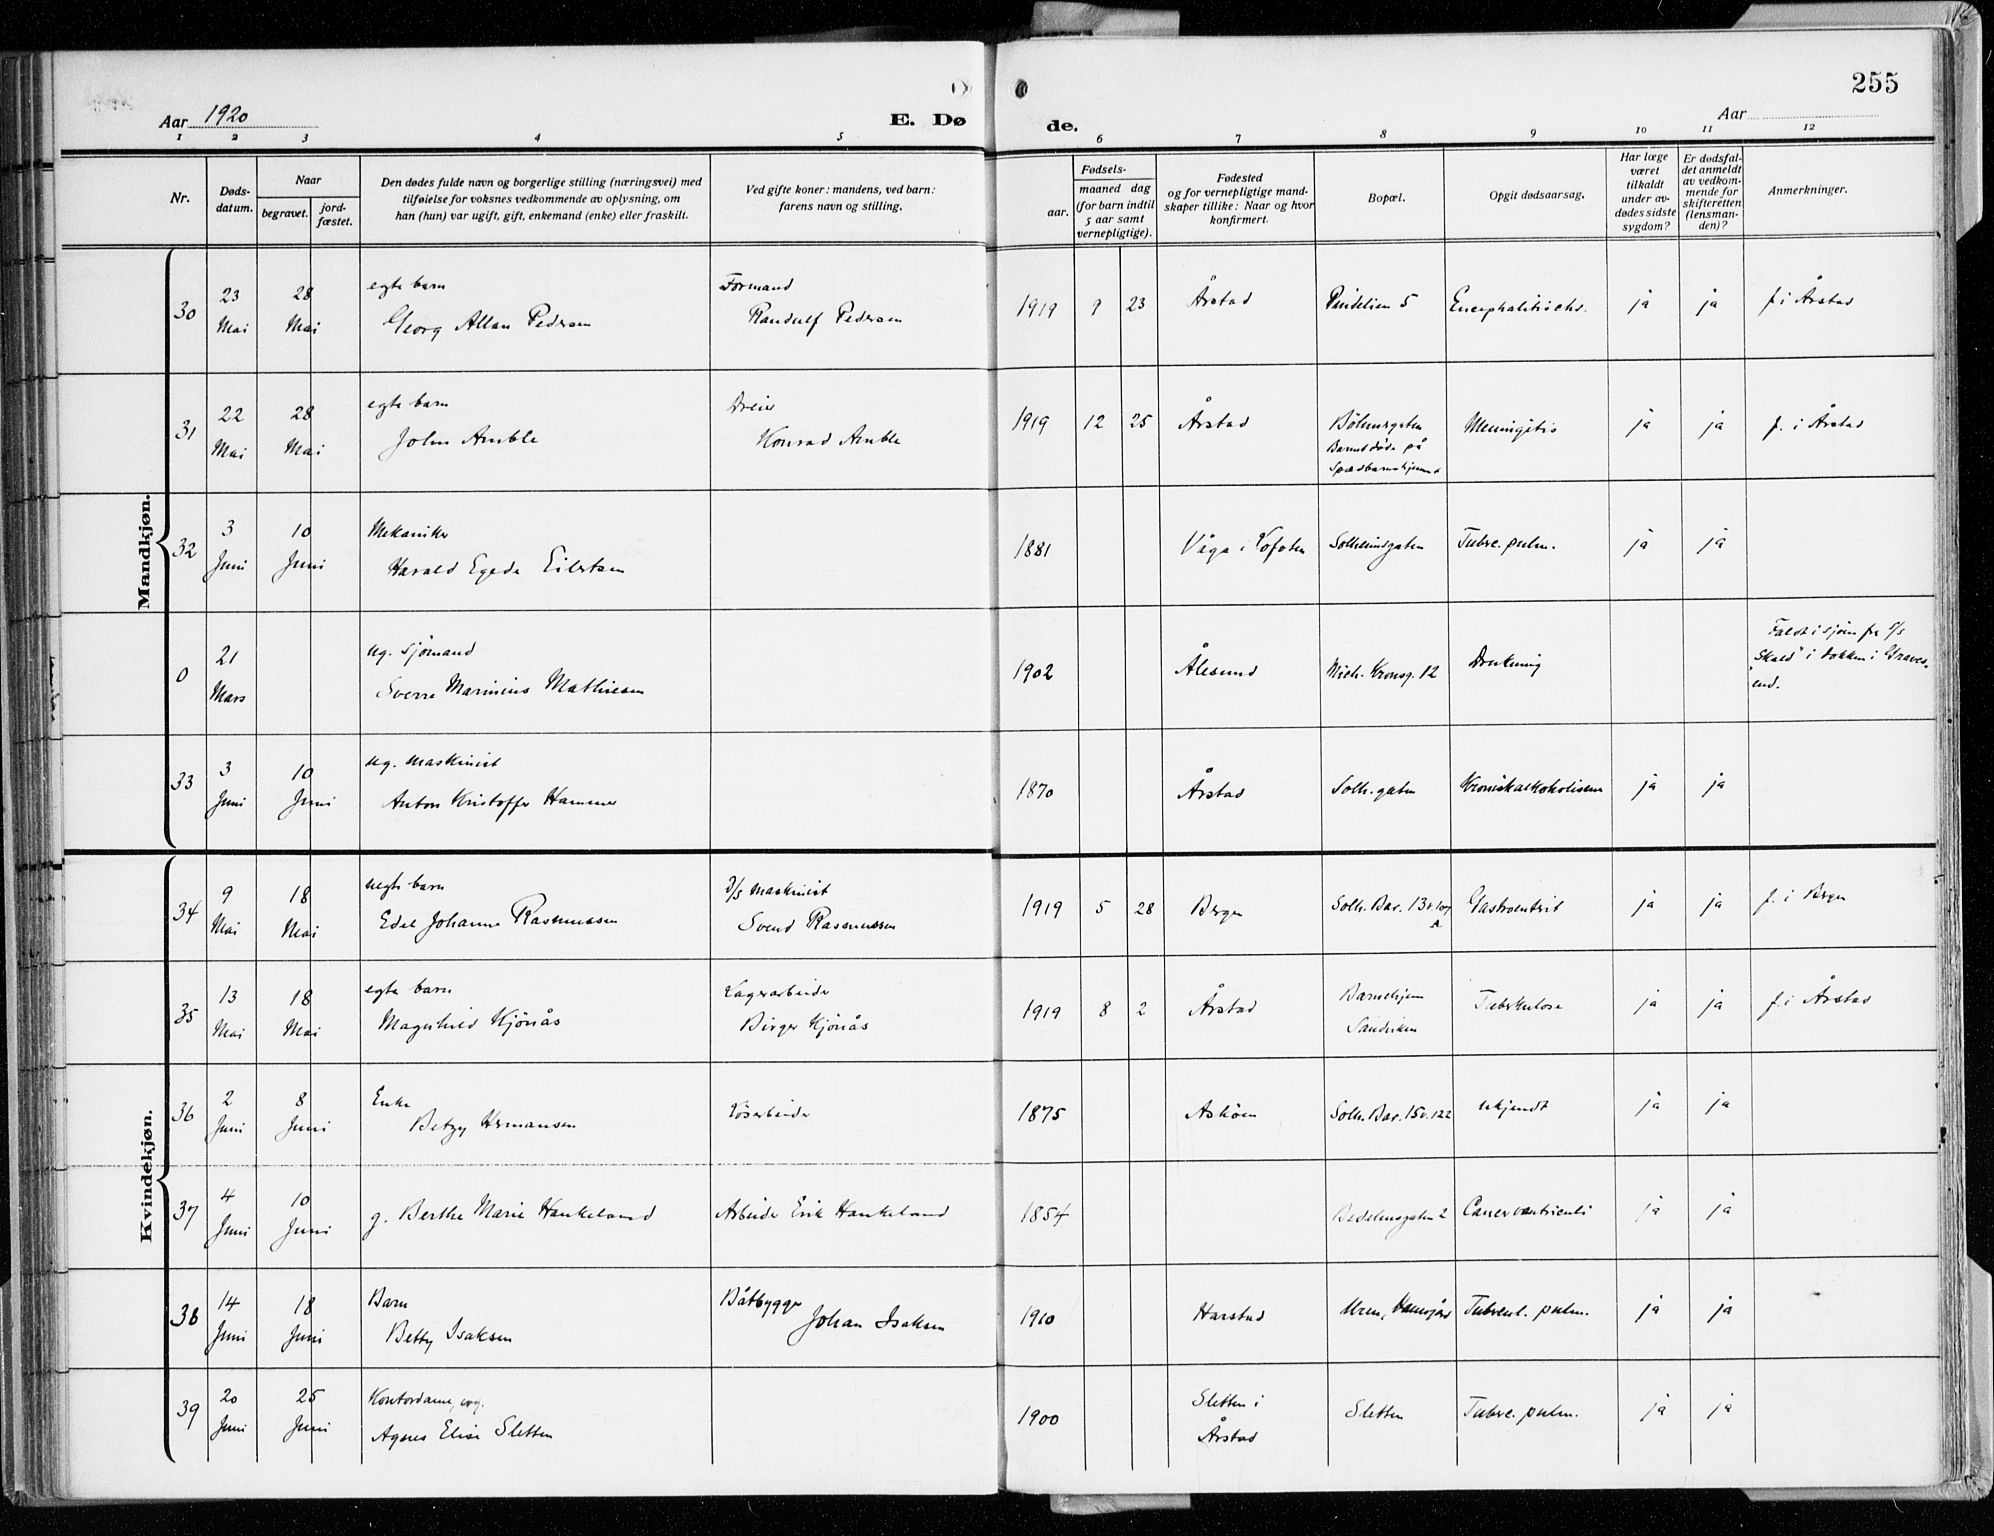 255
Aar 1920
E. Dø
de.
Aar
1 2 3 4 5 6 7 8 9 10 11 12
Nr.
Døds-
datum.
Naar
begravet.
jord-
fæstet.
Den dødes fulde navn og borgerlige stilling (næringsvei) med
tilføielse for voksnes vedkommende av oplysning, om
han (hun) var ugift, gift, enkemand (enke) eller fraskilt.
Ved gifte koner: mandens, ved barn:
farens navn og stilling.
Fødsels-
aar.
maaned dag
(for barn indtil
5 aar samt
vernepligtige).
Fødested
og for vernepligtige mand-
skaper tillike: Naar og hvor
konfirmert.
Bopæl.
Opgit dødsaarsag.
Har læge
været
tilkaldt
under av-
dødes sidste
sygdom?
Er dødsfal-
det anmeldt
av vedkom-
mende for
skifteretten
(lensman-
den)?
Anmerkninger.
Mandkjøn.
30 23 Mai 28 Mai egte barn Georg Allan Pedersen Formand Randulf Pedersen 1919 9 23 Årstad 5 ja ja f. i Årstad
31 22 Mai 28 Mai egte barn John Amble Dreier Konrad Amble 1919 12 25 Årstad Böhmergaten Barnet døde på Spædbarnshjemmet Meningitis ja ja f. i Årstad
32 3 Juni 10 Juni Mekaniker Harald Egede Eilertsen 1881 Våga i Lofoten Solheimsgaten Tuberc. pulm. ja ja
0 21 Mars ug. Sjømand Sverre Marinius Mathiesen 1902 Ålesund Mich. Kronsg. 12 Drukning Faldt i sjøen fra S/S "Skald" i dokken i Gravesend.
33 3 Juni 10 Juni ug. maskinist Anton Kristoffer Hammer 1870 Årstad Solh. gaten Kroniskalkoholisme ja ja
Kvindekjøn.
34 9 Mai 18 Mai uegte barn Edel Johanne Rasmussen D/S Maskinist Svend Rasmussen 1919 5 28 Bergen Solh. Bar. 13 v. 107 A Gastroenterit ja ja f. i Bergen
35 13 Mai 18 Mai egte barn Magnhild Kjønås Lagerarbeider Birger Kjønås 1919 8 2 Årstad Barnehjem Sandviken Tuberkulose ja ja f. i Årstad
36 2 Juni 8 Juni Enke Betzy Hermansen Løsarbeider 1875 Askøen Solh. Bar. 15 v. 122 ukjendt ja ja
37 4 Juni 10 Juni g. Berthe Marie Haukeland Arbeider Erik Haukeland 1854 2 Cancer ventriculi ja ja
38 14 Juni 18 Juni Barn Betty Isaksen Båtbygger Johan Isaksen 1910 Harstad Uren, Tubercul. pulm. ja ja
39 20 Juni 25 Juni Kontordame, ug. Agnes Elise Sletten 1900 Sletten i Årstad Sletten Tuberc. pulm. ja ja